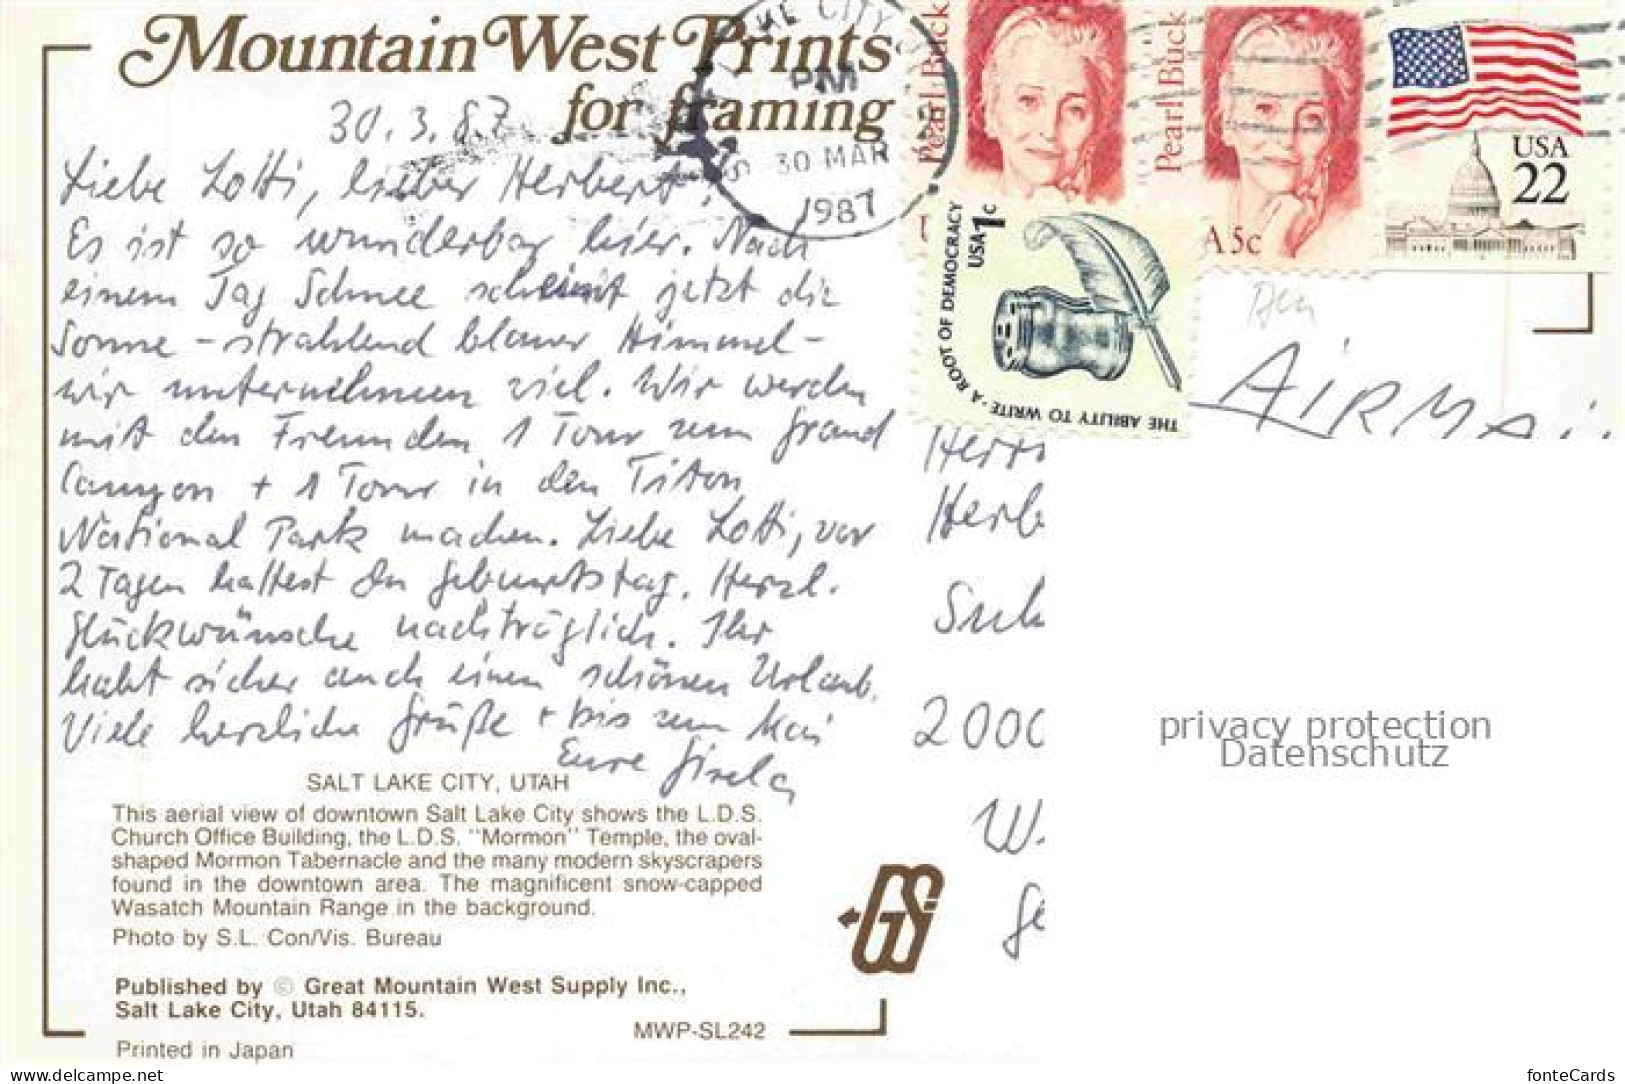 Mountain West Prints
for framing
30.3.87
Liebe Lotti, lieber Herbert,
Es ist so wunderbar hier. Nach
einem Tag Schnee scheint jetzt die
Sonne - strahlend blauer Himmel -
wir unternehmen viel. Wir werden
mit den Freunden 1 Tour zum Grand
Canyon + 1 Tour in den Titon
National Park machen. Liebe Lotti, vor
2 Tagen hattest Du Geburtstag. Herzl.
Glückwünsche nachträglich. Ihr
habt sicher auch einen schönen Urlaub.
Viele herzliche Grüße + bis zum Mai
Eure Gisela
SALT LAKE CITY, UTAH
This aerial view of downtown Salt Lake City shows the L.D.S.
Church Office Building, the L.D.S. "Mormon" Temple, the oval-
shaped Mormon Tabernacle and the many modern skyscrapers
found in the downtown area. The magnificent snow-capped
Wasatch Mountain Range in the background.
Photo by S.L. Con/Vis. Bureau
Published by © Great Mountain West Supply Inc.,
Salt Lake City, Utah 84115.
MWP-SL242
Printed in Japan
GS
LAKE CITY
PM
30 MAR
1987
Pearl Buck
Pearl Buck
A 5c
USA
22
USA 1c
THE ABILITY TO WRITE · A ROOT OF DEMOCRACY
AIRMAI
Herr
Herb
Suh
2000
W.
Ge
privacy protection
Datenschutz
www.delcampe.net
fonteCards